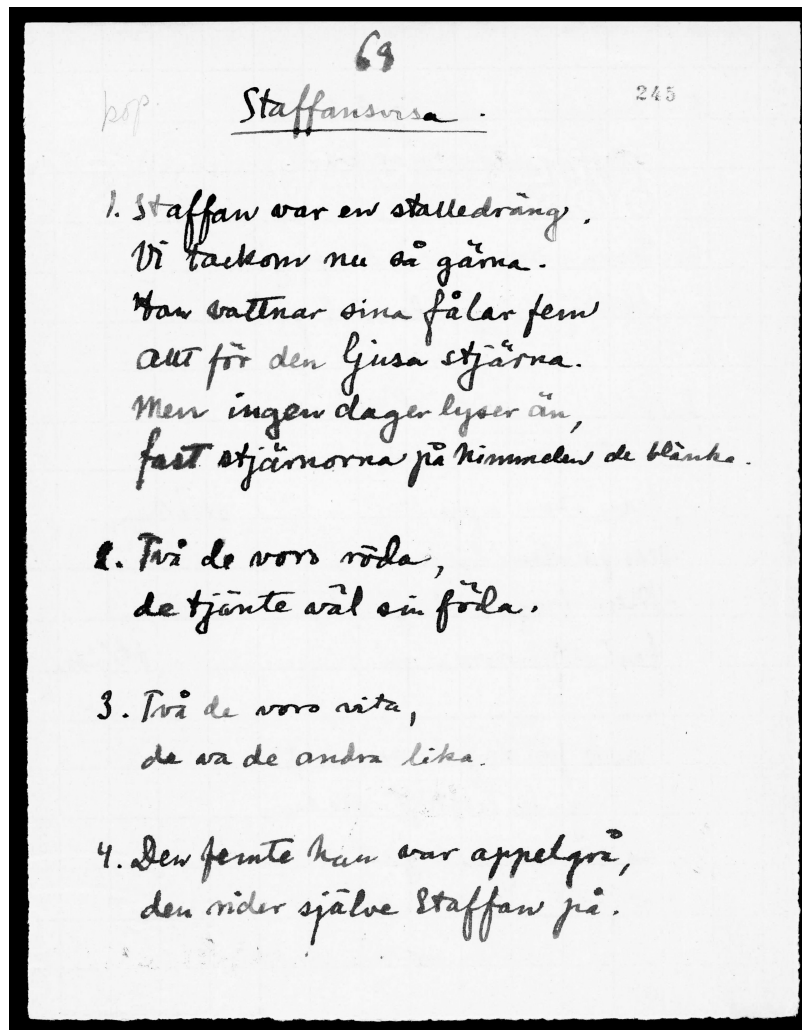 68
245
pop.
Staffansvisa.
1. Staffan var en stalledräng.
Vi tackom nu så gärna.
Han vattnar sina fålar fem
allt för den ljusa stjärna.
Men ingen dager lyser än,
fast stjärnorna på himmelen de blänka.
2. Två de voro röda,
de tjänte väl sin föda.
3. Två de voro vita,
de va de andra lika.
4. Den femte han var appelgrå,
den rider själve Staffan på.